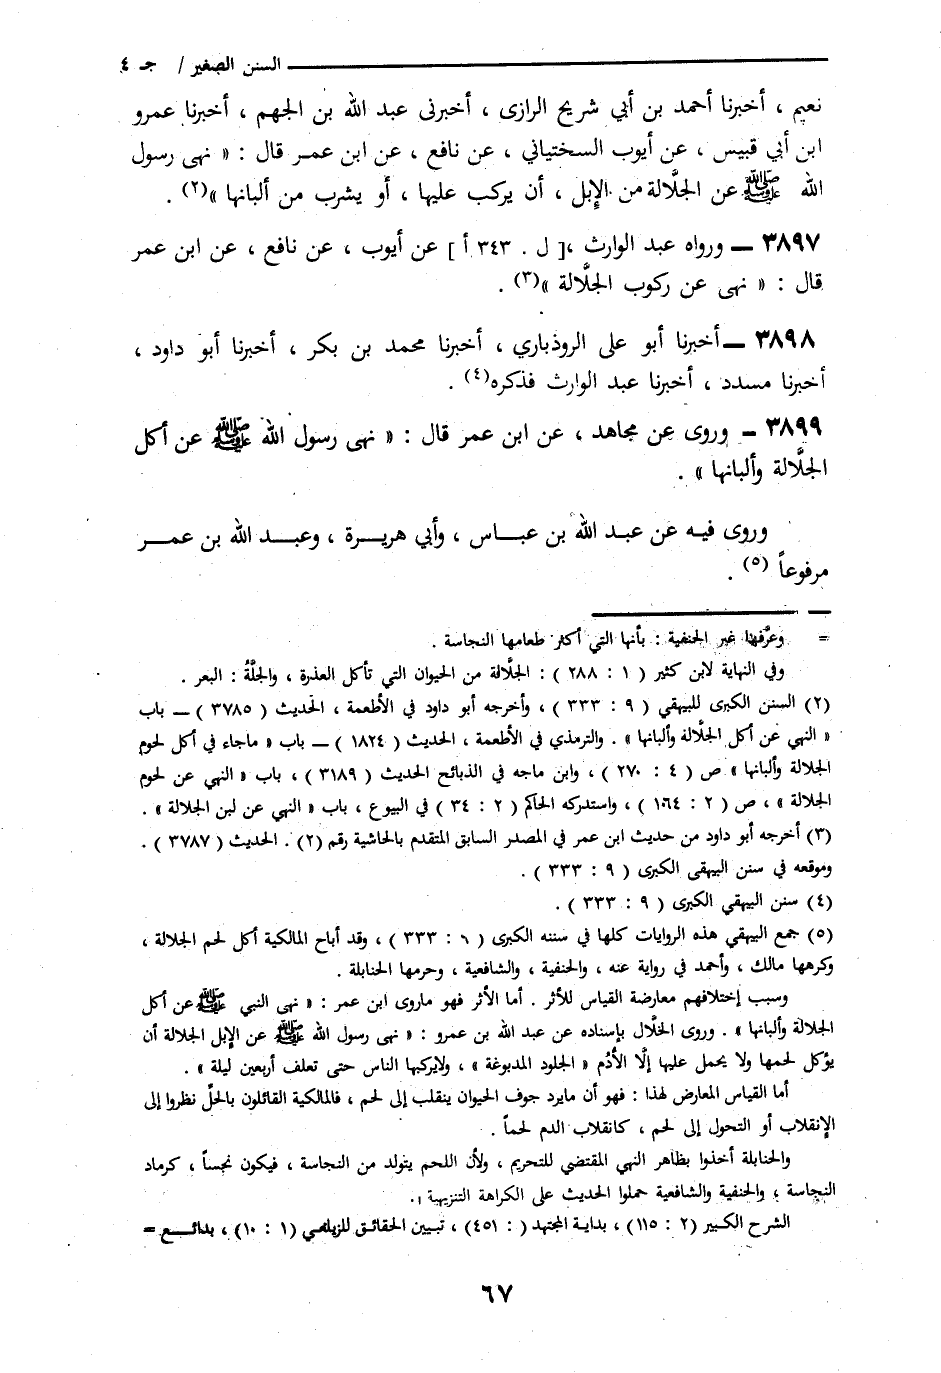 السنن الصغير / جـ ٤
نعيم ، أخبرنا أحمد بن أبي شريح الرازى ، أخبرنى عبد الله بن الجهم ، أخبرنا عمرو
ابن أبي قبيس ، عن أيوب السختياني ، عن نافع ، عن ابن عمر قال : « نهى رسول
الله ﷺ عن الجلَّالة من الإبل ، أن يركب عليها ، أو يشرب من ألبانها »(٢) .
٣٨٩٧ ــ ورواه عبد الوارث ،[ ل . ٣٤٣ أ ] عن أيوب ، عن نافع ، عن ابن عمر
قال : « نهى عن ركوب الجلَّالة »(٣) .
٣٨٩٨ ــ أخبرنا أبو على الروذباري ، أخبرنا محمد بن بكر ، أخبرنا أبو داود ،
أخبرنا مسدد ، أخبرنا عبد الوارث فذكره(٤) .
٣٨٩٩ ــ وروى عن مجاهد ، عن ابن عمر قال : « نهى رسول الله ﷺ عن أكل
الجلَّالة وألبانها » .
وروى فيه عن عبد الله بن عباس ، وأبي هريرة ، وعبد الله بن عمر
مرفوعاً (٥) .
= وعرَّفها غير الحنفية : بأنها التي أكثر طعامها النجاسة .
وفي النهاية لابن كثير ( ١ : ٢٨٨ ) : الجلَّالة من الحيوان التي تأكل العذرة ، والجلَّةُ : البعر .
(٢) السنن الكبرى للبيهقي ( ٩ : ٣٣٣ ) ، وأخرجه أبو داود في الأطعمة ، الحديث ( ٣٧٨٥ ) ــ باب
« النهي عن أكل الجلَّالة وألبانها » . والترمذي في الأطعمة ، الحديث ( ١٨٢٤ ) ــ باب « ماجاء في أكل لحوم
الجلالة وألبانها » ص ( ٤ : ٢٧٠ ) ، وابن ماجه في الذبائح الحديث ( ٣١٨٩ ) ، باب « النهي عن لحوم
الجلالة » ، ص ( ٢ : ١٠٦٤ ) ، واستدركه الحاكم ( ٢ : ٣٤ ) في البيوع ، باب « النهي عن لبن الجلالة » .
(٣) أخرجه أبو داود من حديث ابن عمر في المصدر السابق المتقدم بالحاشية رقم (٢) . الحديث ( ٣٧٨٧ ) .
وموقعه في سنن البيهقى الكبرى ( ٩ : ٣٣٣ ) .
(٤) سنن البيهقي الكبرى ( ٩ : ٣٣٣ ) .
(٥) جمع البيهقي هذه الروايات كلها في سننه الكبرى ( ٦ : ٣٣٣ ) ، وقد أباح المالكية أكل لحم الجلالة ،
وكرهها مالك ، وأحمد في رواية عنه ، والحنفية ، والشافعية ، وحرمها الحنابلة .
وسبب إختلافهم معارضة القياس للأثر . أما الأثر فهو ماروى ابن عمر : « نهى النبي ﷺ عن أكل
الجلالة وألبانها » . وروى الخلَّال بإسناده عن عبد الله بن عمرو : « نهى رسول الله ﷺ عن الإبل الجلالة أن
يؤكل لحمها ولا يحمل عليها إلَّا الأُدُم « الجلود المدبوغة » ، ولايركبها الناس حتى تعلف أربعين ليلة » .
أما القياس المعارض لهذا : فهو أن مايرد جوف الحيوان ينقلب إلى لحم ، فالمالكية القائلون بالحلِّ نظروا إلى
الإنقلاب أو التحول إلى لحم ، كانقلاب الدم لحماً .
والحنابلة أخذوا بظاهر النهي المقتضي للتحريم ، ولأن اللحم يتولد من النجاسة ، فيكون نجساً ، كرماد
النجاسة ، والحنفية والشافعية حملوا الحديث على الكراهة التنزيهية .
الشرح الكبير (٢ : ١١٥) ، بداية المجتهد ( : ٤٥١) ، تبيين الحقائق للزيلعي (١ : ١٠) ، بدائع =
٦٧